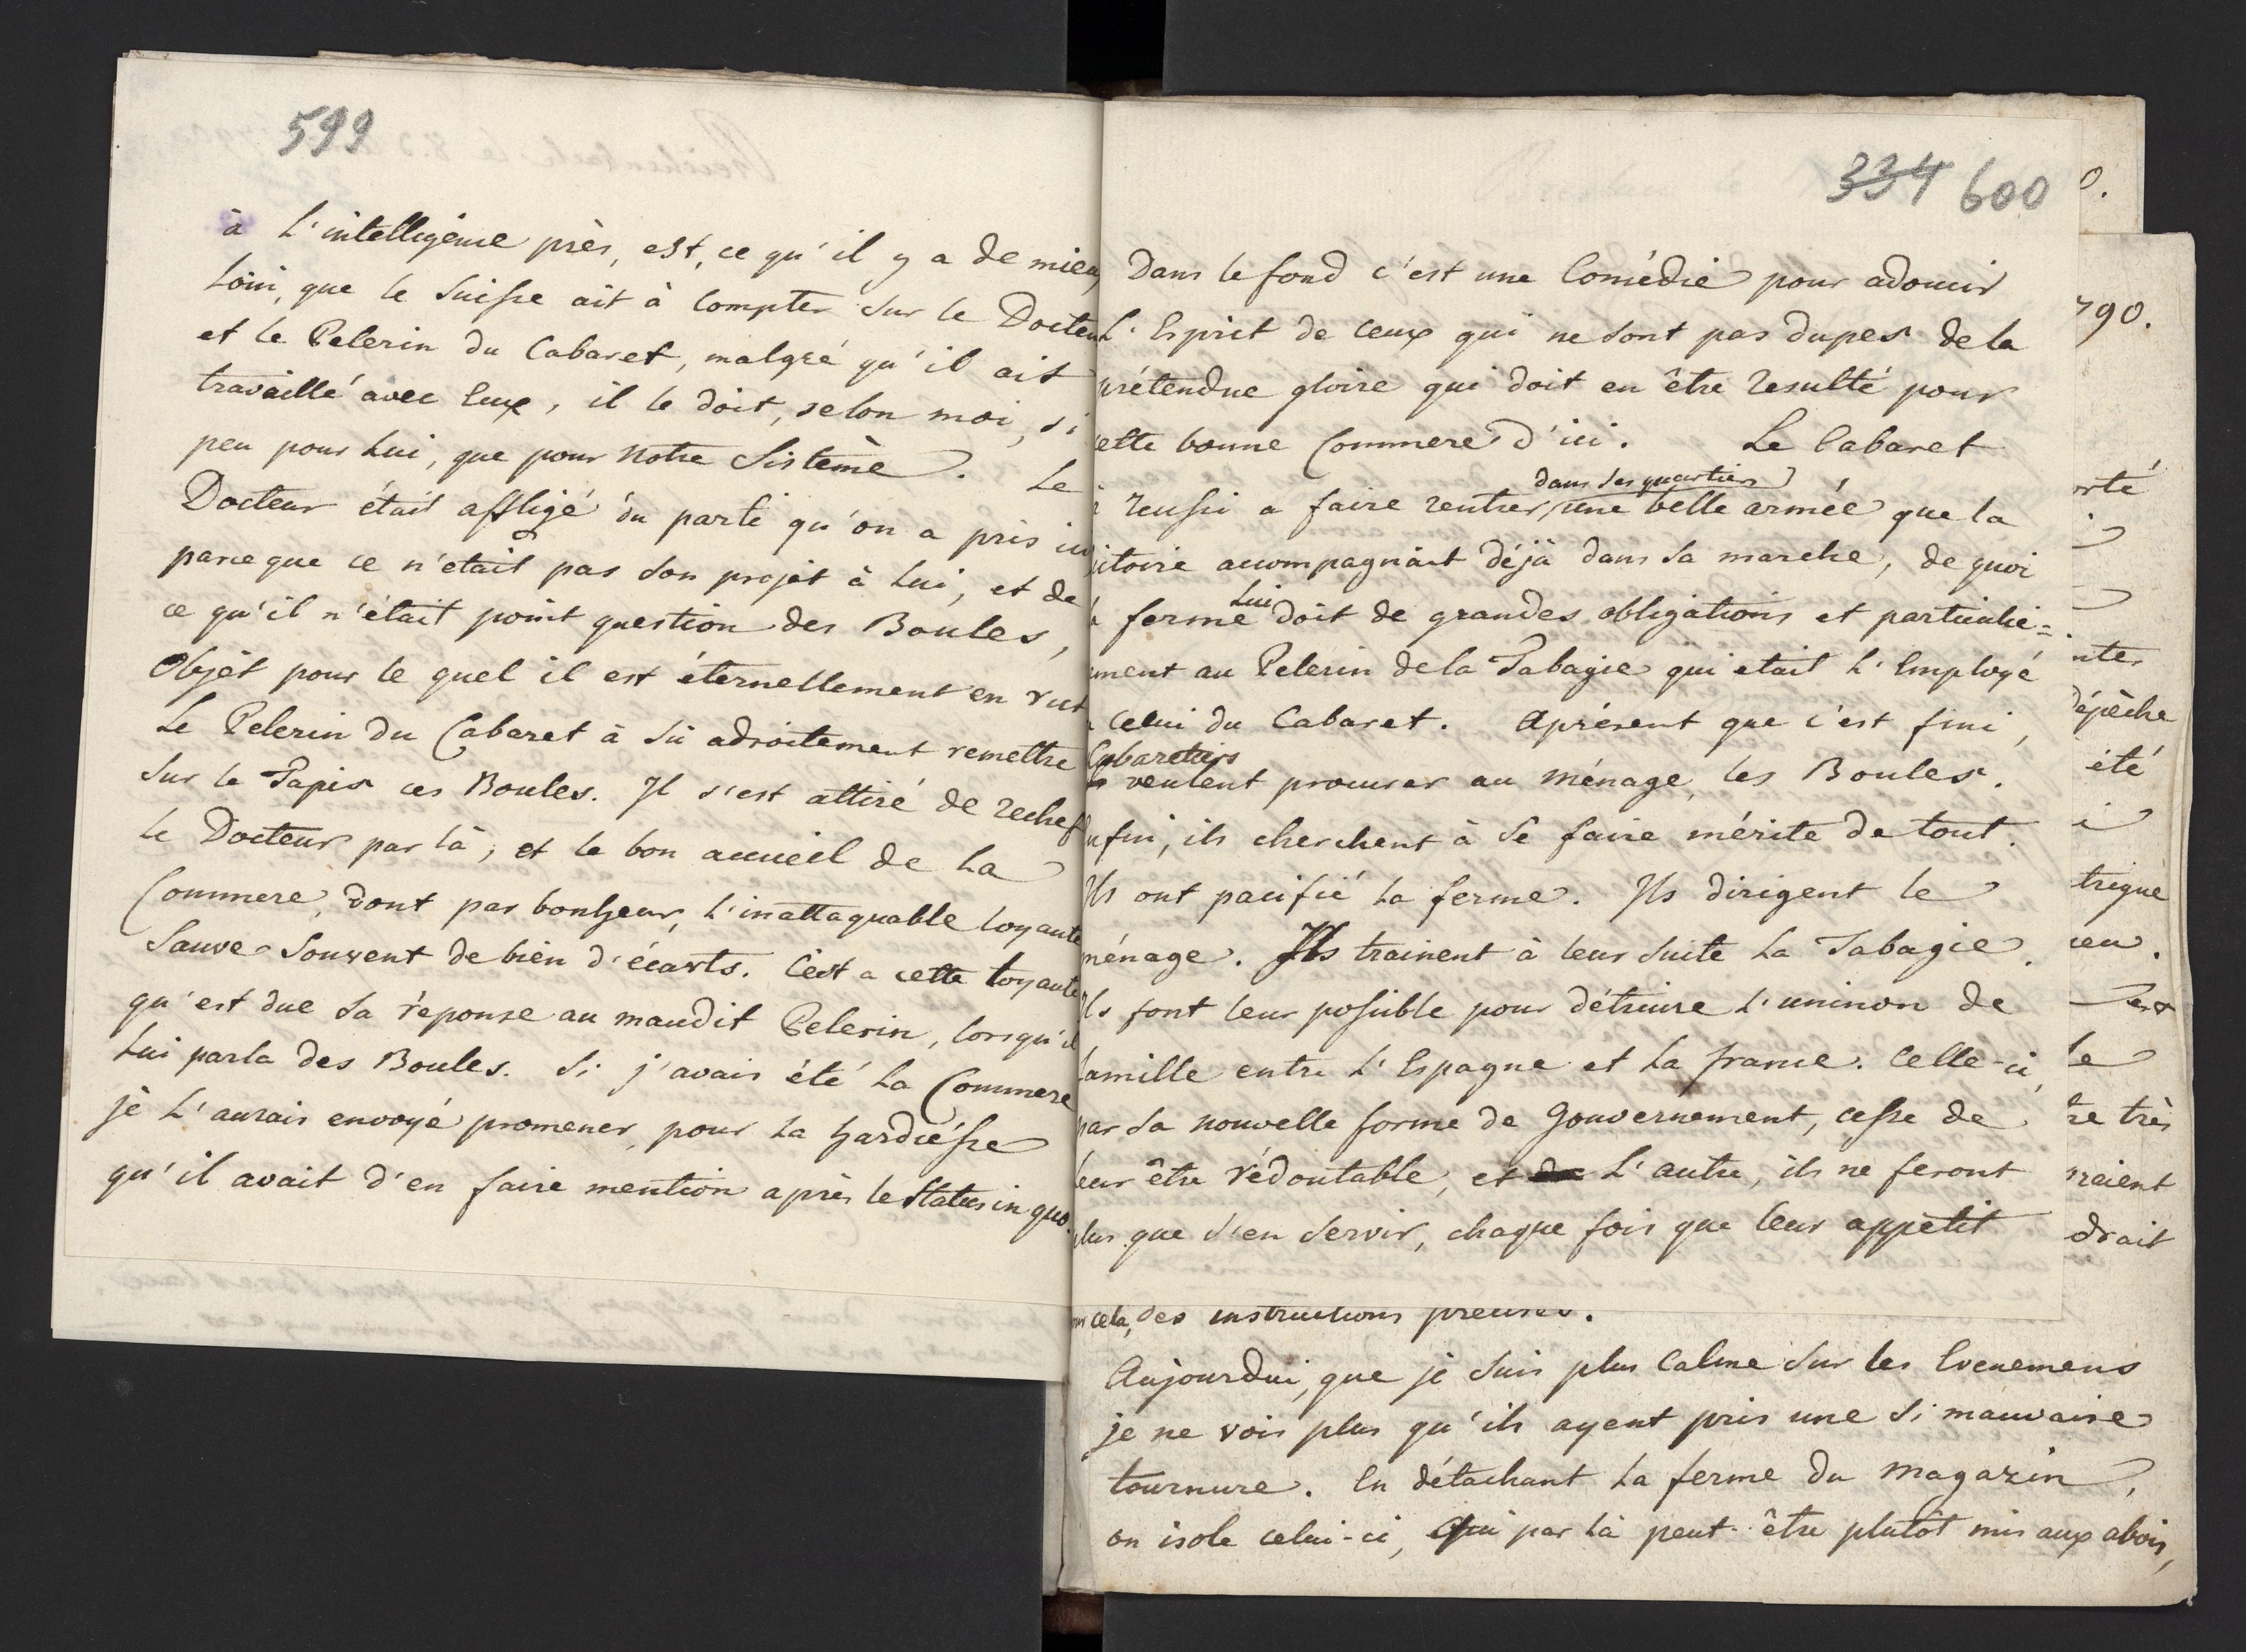 599
à L'intelligence près, est, ce qu'il y a de mieux
Loin, que le Suisse ait à Compter sur le Docteur
et le Pelerin du Cabaret, malgré qu'il ait
travaillé avec Eux, il le doit, selon moi, si
peu pour Lui, que pour Notre Sistème. Le
Docteur était affligé du parti qu'on a pris ici
parceque ce n'était pas son projèt à Lui, et de
ce qu'il n'était point question des Boules,
Objèt pour le quel il est éternellement en rut
Le Pelerin du Cabaret à sû adroitement remettre
sur le Tapis ces Boules. Il s'est attiré de rechef
le Docteur par là, et le bon accueil de La
Commere, dont par bonheur, L'inattaquable loyauté
sauve souvent de bien d'écarts. C'est a cette loyauté
qu'est due sa réponse au maudit Pelerin, lorsqu'il
Lui parla des Boules. Si j'avais été La Commere
jè L'aurais envoyé promener, pour La hardiésse
qu'il avait d'en faire mention après le Status in quo.
334 600
Dans le fond c'est une Comédie pour adoucir
L'Esprit de Ceux qui ne sont pas dupes de la
prétendue gloire qui doit en être resulté pour
cette bonne Commere d'ici. Le Cabaret
dans ses quartiers
reussi a faire rentrer, une belle armée que la
itoire accompagnait déjà dans sa marche, de quoi
Lui
ferme doit de grandes obligations et particulie=
ment au Pelerin de la Tabagie qui etait L'Employé
celui du Cabaret. Aprésent que c'est fini,
Cabaretiers
veulent procurer au ménage, les Boules.
nfin, ils cherchent à se faire mérite de tout.
Ils ont pacifié La ferme. Ils dirigent le
ménage. Ils trainent à leur suite La Tabagie.
Ils font leur possible pour détruire L'uninon de
famille entre L'Espagne et La france. Celle-ci,
par sa nouvelle forme de Gouvernement, cesse de
leur être rédoutable, et L'autre, ils ne feront
plus que s'en servir, chaque fois que leur appétit
cela, des instructions precises.
Aujourdui, que je suis plus Calme sur les Evenemens
je ne vois plus qu'ils ayent pris une si mauvaise
tournure. En détachant La ferme du magazin,
on isole celui-ci, qui par là peut-être plutôt mis aux abois,
0.
790.
rté
nter
dépèche
été
i
trigue
ieu.
le
re très
raient
drait